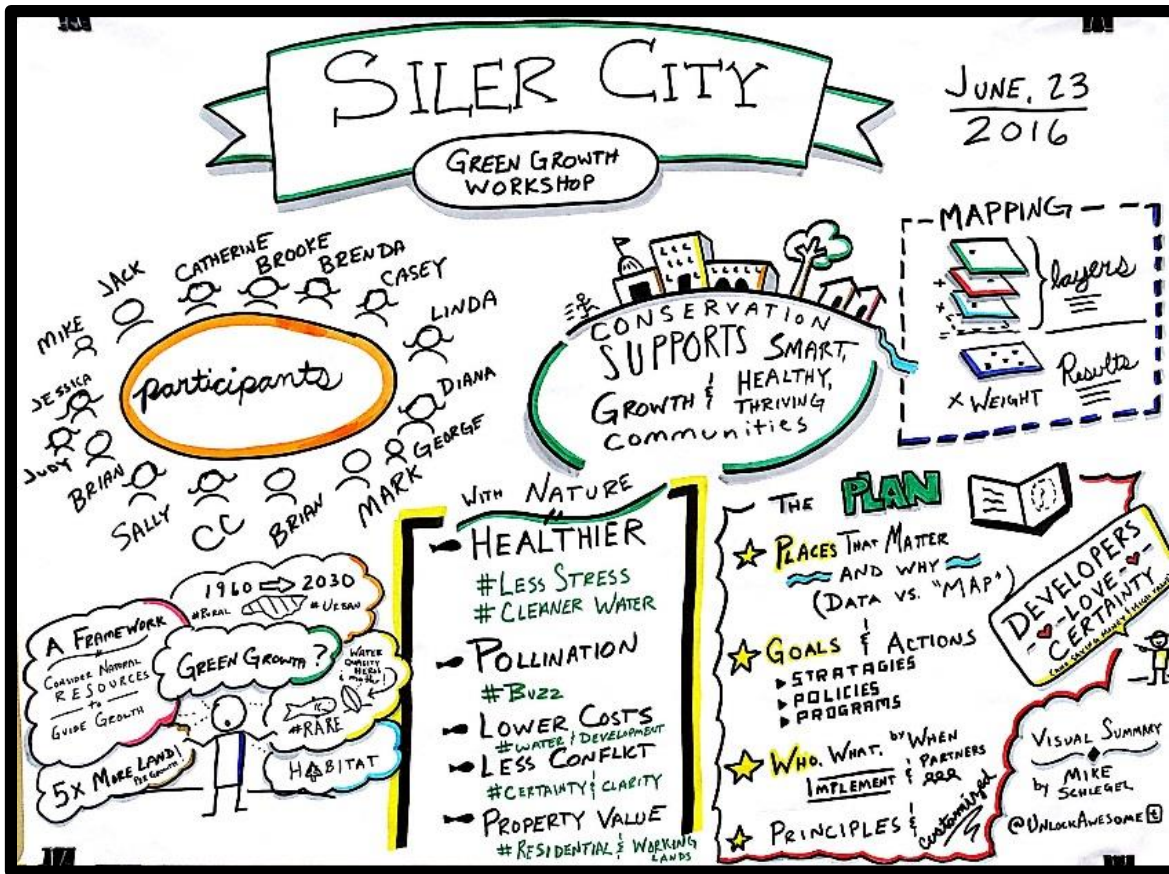 SILER CITY
GREEN GROWTH
WORKSHOP
JUNE, 23
2016
MIKE
JACK
CATHERINE
BROOKE
BRENDA
CASEY
LINDA
DIANA
GEORGE
MARK
BRIAN
CC
SALLY
BRIAN
JUDY
JESSICA
participants
CONSERVATION
SUPPORTS SMART,
GROWTH & HEALTHY,
THRIVING
COMMUNITIES
MAPPING
layers
Results
x WEIGHT
1960 ⇒ 2030
#RURAL #URBAN
A FRAMEWORK
CONSIDER NATURAL
RESOURCES
to
GUIDE GROWTH
GREEN GROWTH?
WATER
QUALITY
HERE
matter!
#RARE
5x MORE LAND!
PER GROWTH!
HABITAT
WITH NATURE
HEALTHIER
#LESS STRESS
#CLEANER WATER
POLLINATION
#BUZZ
LOWER COSTS
#WATER & DEVELOPMENT
LESS CONFLICT
#CERTAINTY & CLARITY
PROPERTY VALUE
#RESIDENTIAL & WORKING
LANDS
THE PLAN
PLACES THAT MATTER
AND WHY
(DATA VS. "MAP")
GOALS & ACTIONS
STRATAGIES
POLICIES
PROGRAMS
WHO, WHAT, by WHEN
IMPLEMENT & PARTNERS
PRINCIPLES & customized
DEVELOPERS
-LOVE-
CERTAINTY
(AND SAVING MONEY & HIGH VALUE)
VISUAL SUMMARY
by MIKE
SCHLEGEL
@UNLOCKAWESOME